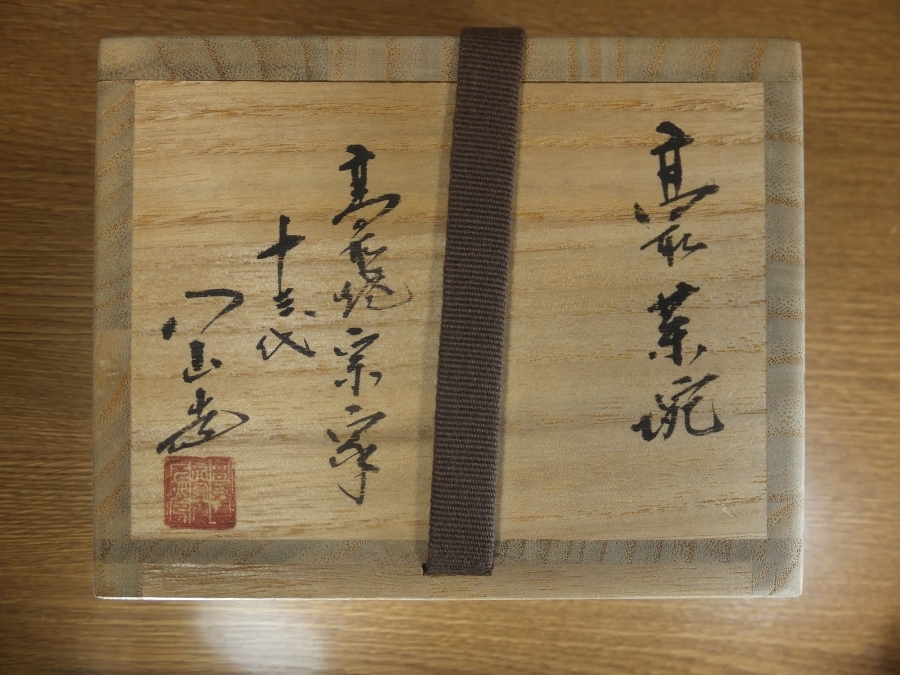 高取 茶碗
高取焼宗家
十三代
八山